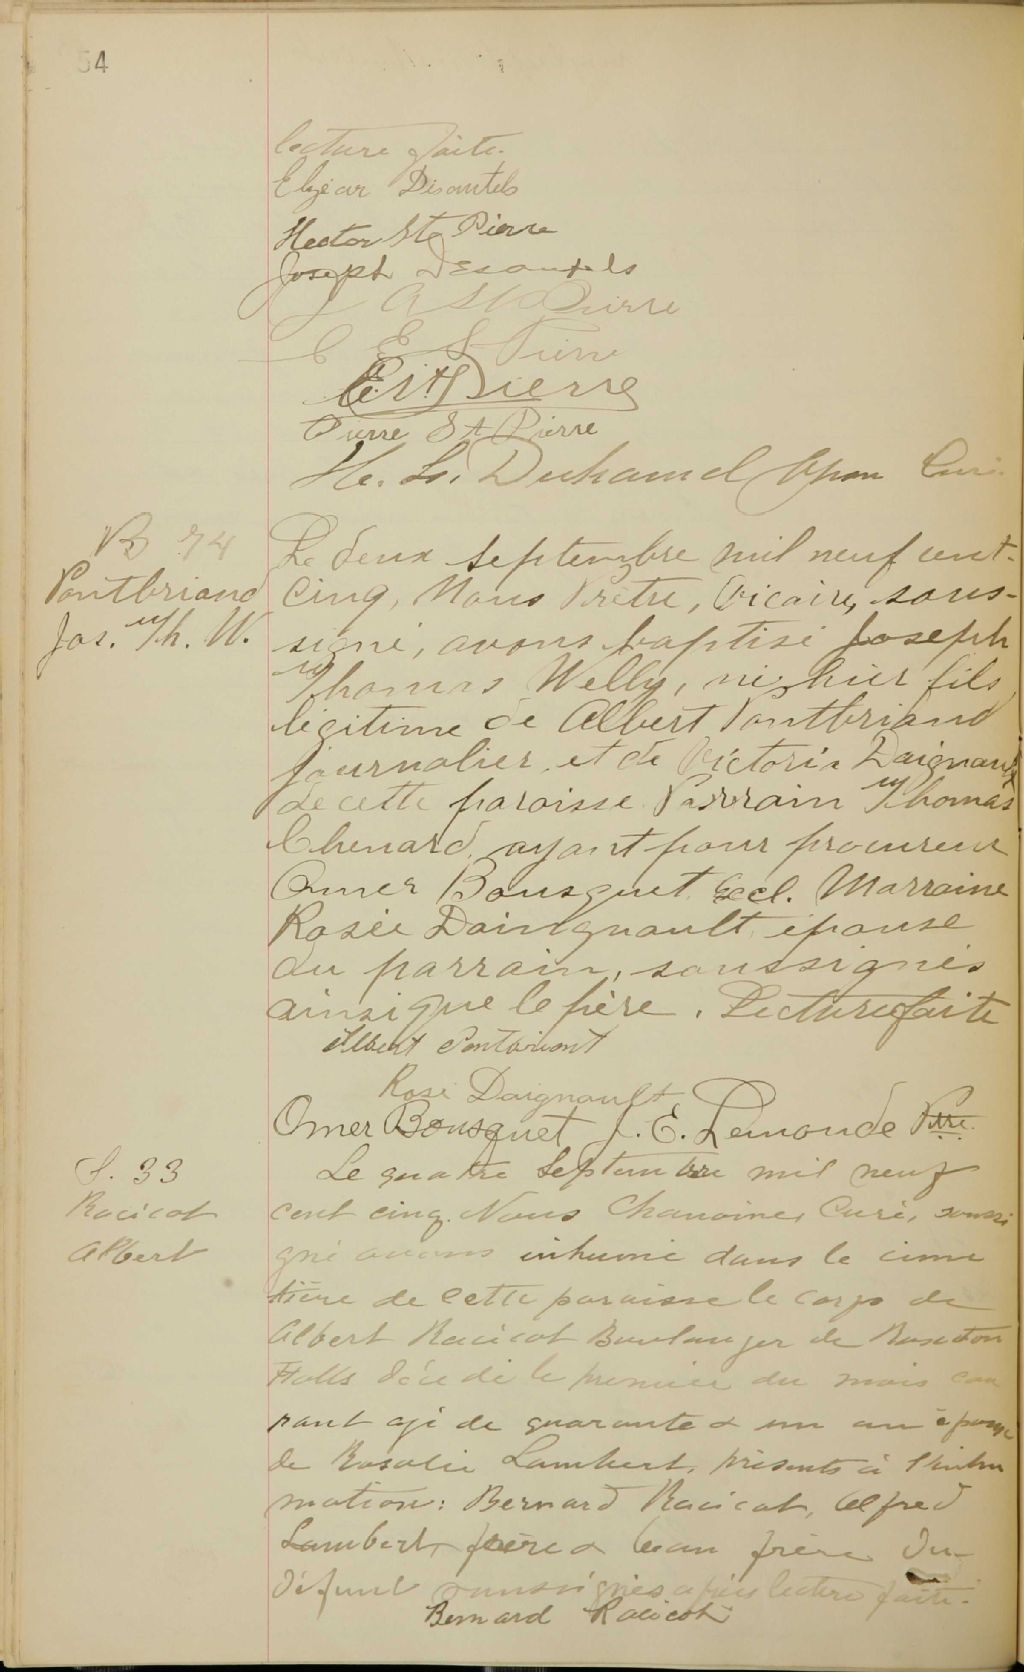 54
lecture faite.
Elzéar Désautels
Hector St Pierre
Joseph Desautels
A St Pierre
E St Pierre
E. St Pierre
Pierre St Pierre
H. L. Duhamel Curé.
B 74
Pontbriand
Jos. Th. W.
Le deux septembre mil neuf cent-
cinq, Nous Prêtre, Vicaire, sous-
signé, avons baptisé Joseph
Thomas Welly, né hier fils
légitime de Albert Pontbriand
journalier, et de Victoria Daignault
de cette paroisse. Parrain Thomas
Chenard, ayant pour procureur
Omer Bousquet, Eccl. Marraine
Rosée Daingnault, épouse
du parrain, soussignés
ainsi que le père. Lecture faite
Albert Pontbriont
Rose Daignault
Omer Bousquet J. E. Lemonde Ptre.
S. 33
Racicot
Albert
Le quatre Septembre mil neuf
cent cinq. Nous Chanoine, Curé, soussi
gné avons inhumé dans le cime
tière de cette paroisse le corps de
Albert Racicot Boulanger de Roxton
Falls décédé le premier du mois cou
rant agé de quarante & un an époux
de Rosalie Lambert, présents à l'inhu
mation: Bernard Racicot, Alfred
Lambert, frère & beau frère du
défunt soussignés après lecture faite.
Bernard Racicot